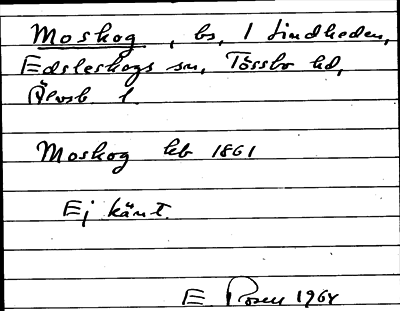 Moskog, bs, 1 Lindheden,
Edsleskogs sn, Tössbo hd,
Älvsb l.
Moskog hb 1861
Ej känt.
E Rosen 1964